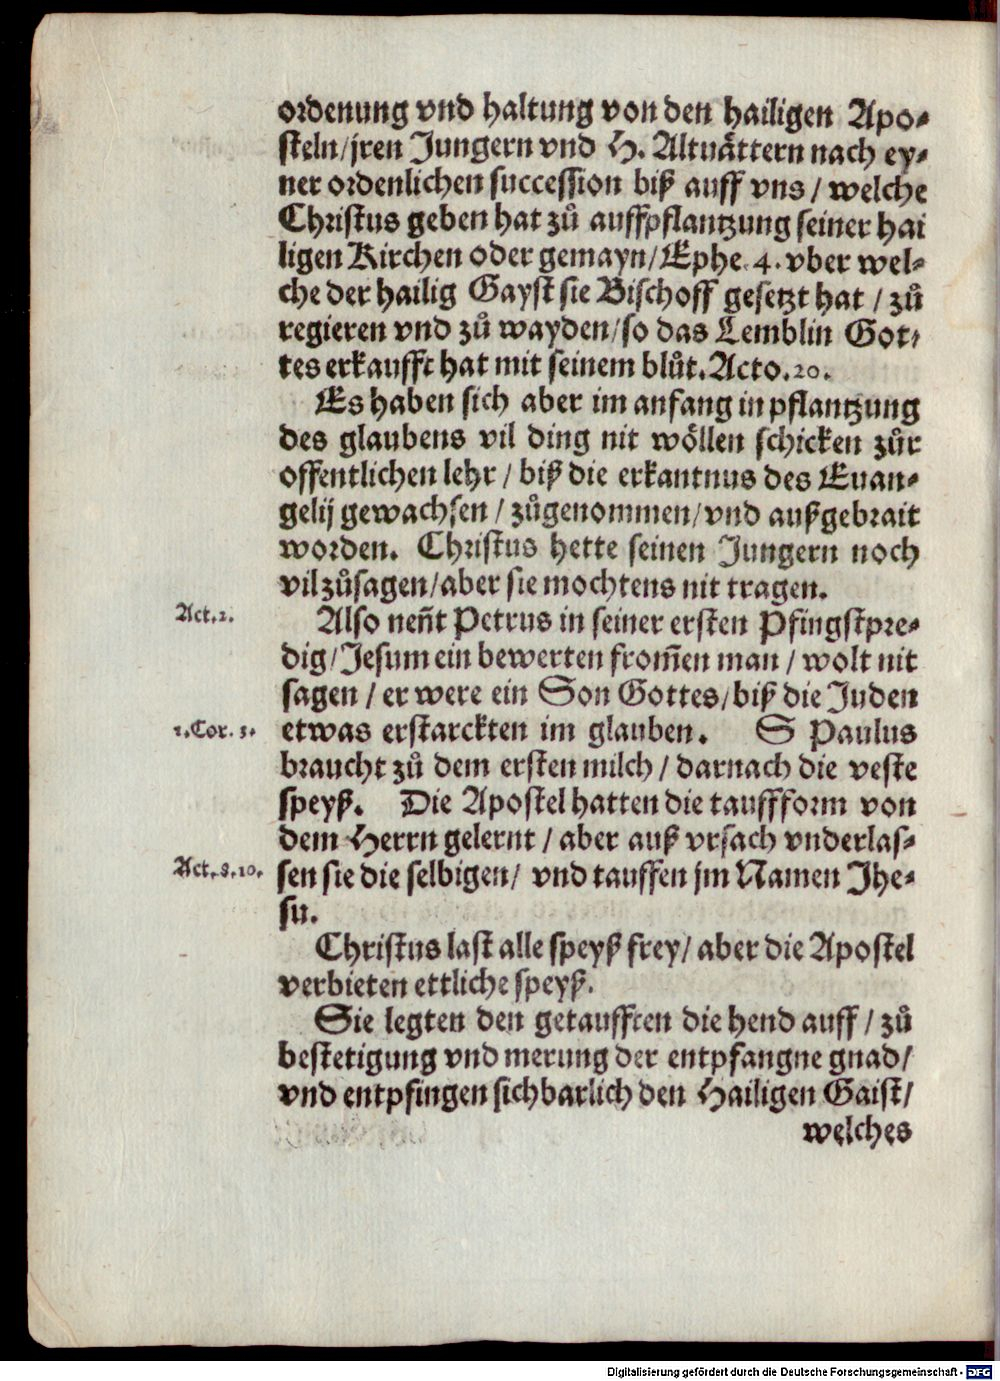 ordenung vnd haltung von den hailigen Apo⸗
steln/jren Jungern vnd H. Altuättern nach ey⸗
ner ordenlichen succession biß auff vns / welche
Christus geben hat zů auffpflantzung seiner hai
ligen Kirchen oder gemayn/Ephe. 4. vber wel⸗
che der hailig Gayst sie Bischoff gesetzt hat / zů
regieren vnd zů wayden/so das Lemblin Got⸗
tes erkaufft hat mit seinem blůt. Acto. 20.
Es haben sich aber im anfang in pflantzung
des glaubens vil ding nit wöllen schicken zůr
offentlichen lehr / biß die erkantnus des Euan⸗
gelij gewachsen / zůgenommen/vnd außgebrait
worden. Christus hette seinen Jungern noch
vil zůsagen/aber sie mochtens nit tragen.
Act. 2.
Also nen̄t Petrus in seiner ersten Pfingstpre⸗
dig/Jesum ein bewerten from̄en man / wolt nit
sagen / er were ein Son Gottes/biß die Juden
1. Cor. 3.
etwas erstarckten im glauben. S Paulus
braucht zů dem ersten milch / darnach die veste
speyß. Die Apostel hatten die tauffform von
dem Herrn gelernt / aber auß vrsach vnderlas⸗
Act. 8. 10.
sen sie die selbigen/ vnd tauffen jm Namen Jhe⸗
su.
Christus last alle speyß frey/ aber die Apostel
verbieten ettliche speyß.
Sie legten den getaufften die hend auff / zů
bestetigung vnd merung der entpfangne gnad/
vnd entpfingen sichbarlich den Hailigen Gaist/
welches
Digitalisierung gefördert durch die Deutsche Forschungsgemeinschaft - DFG